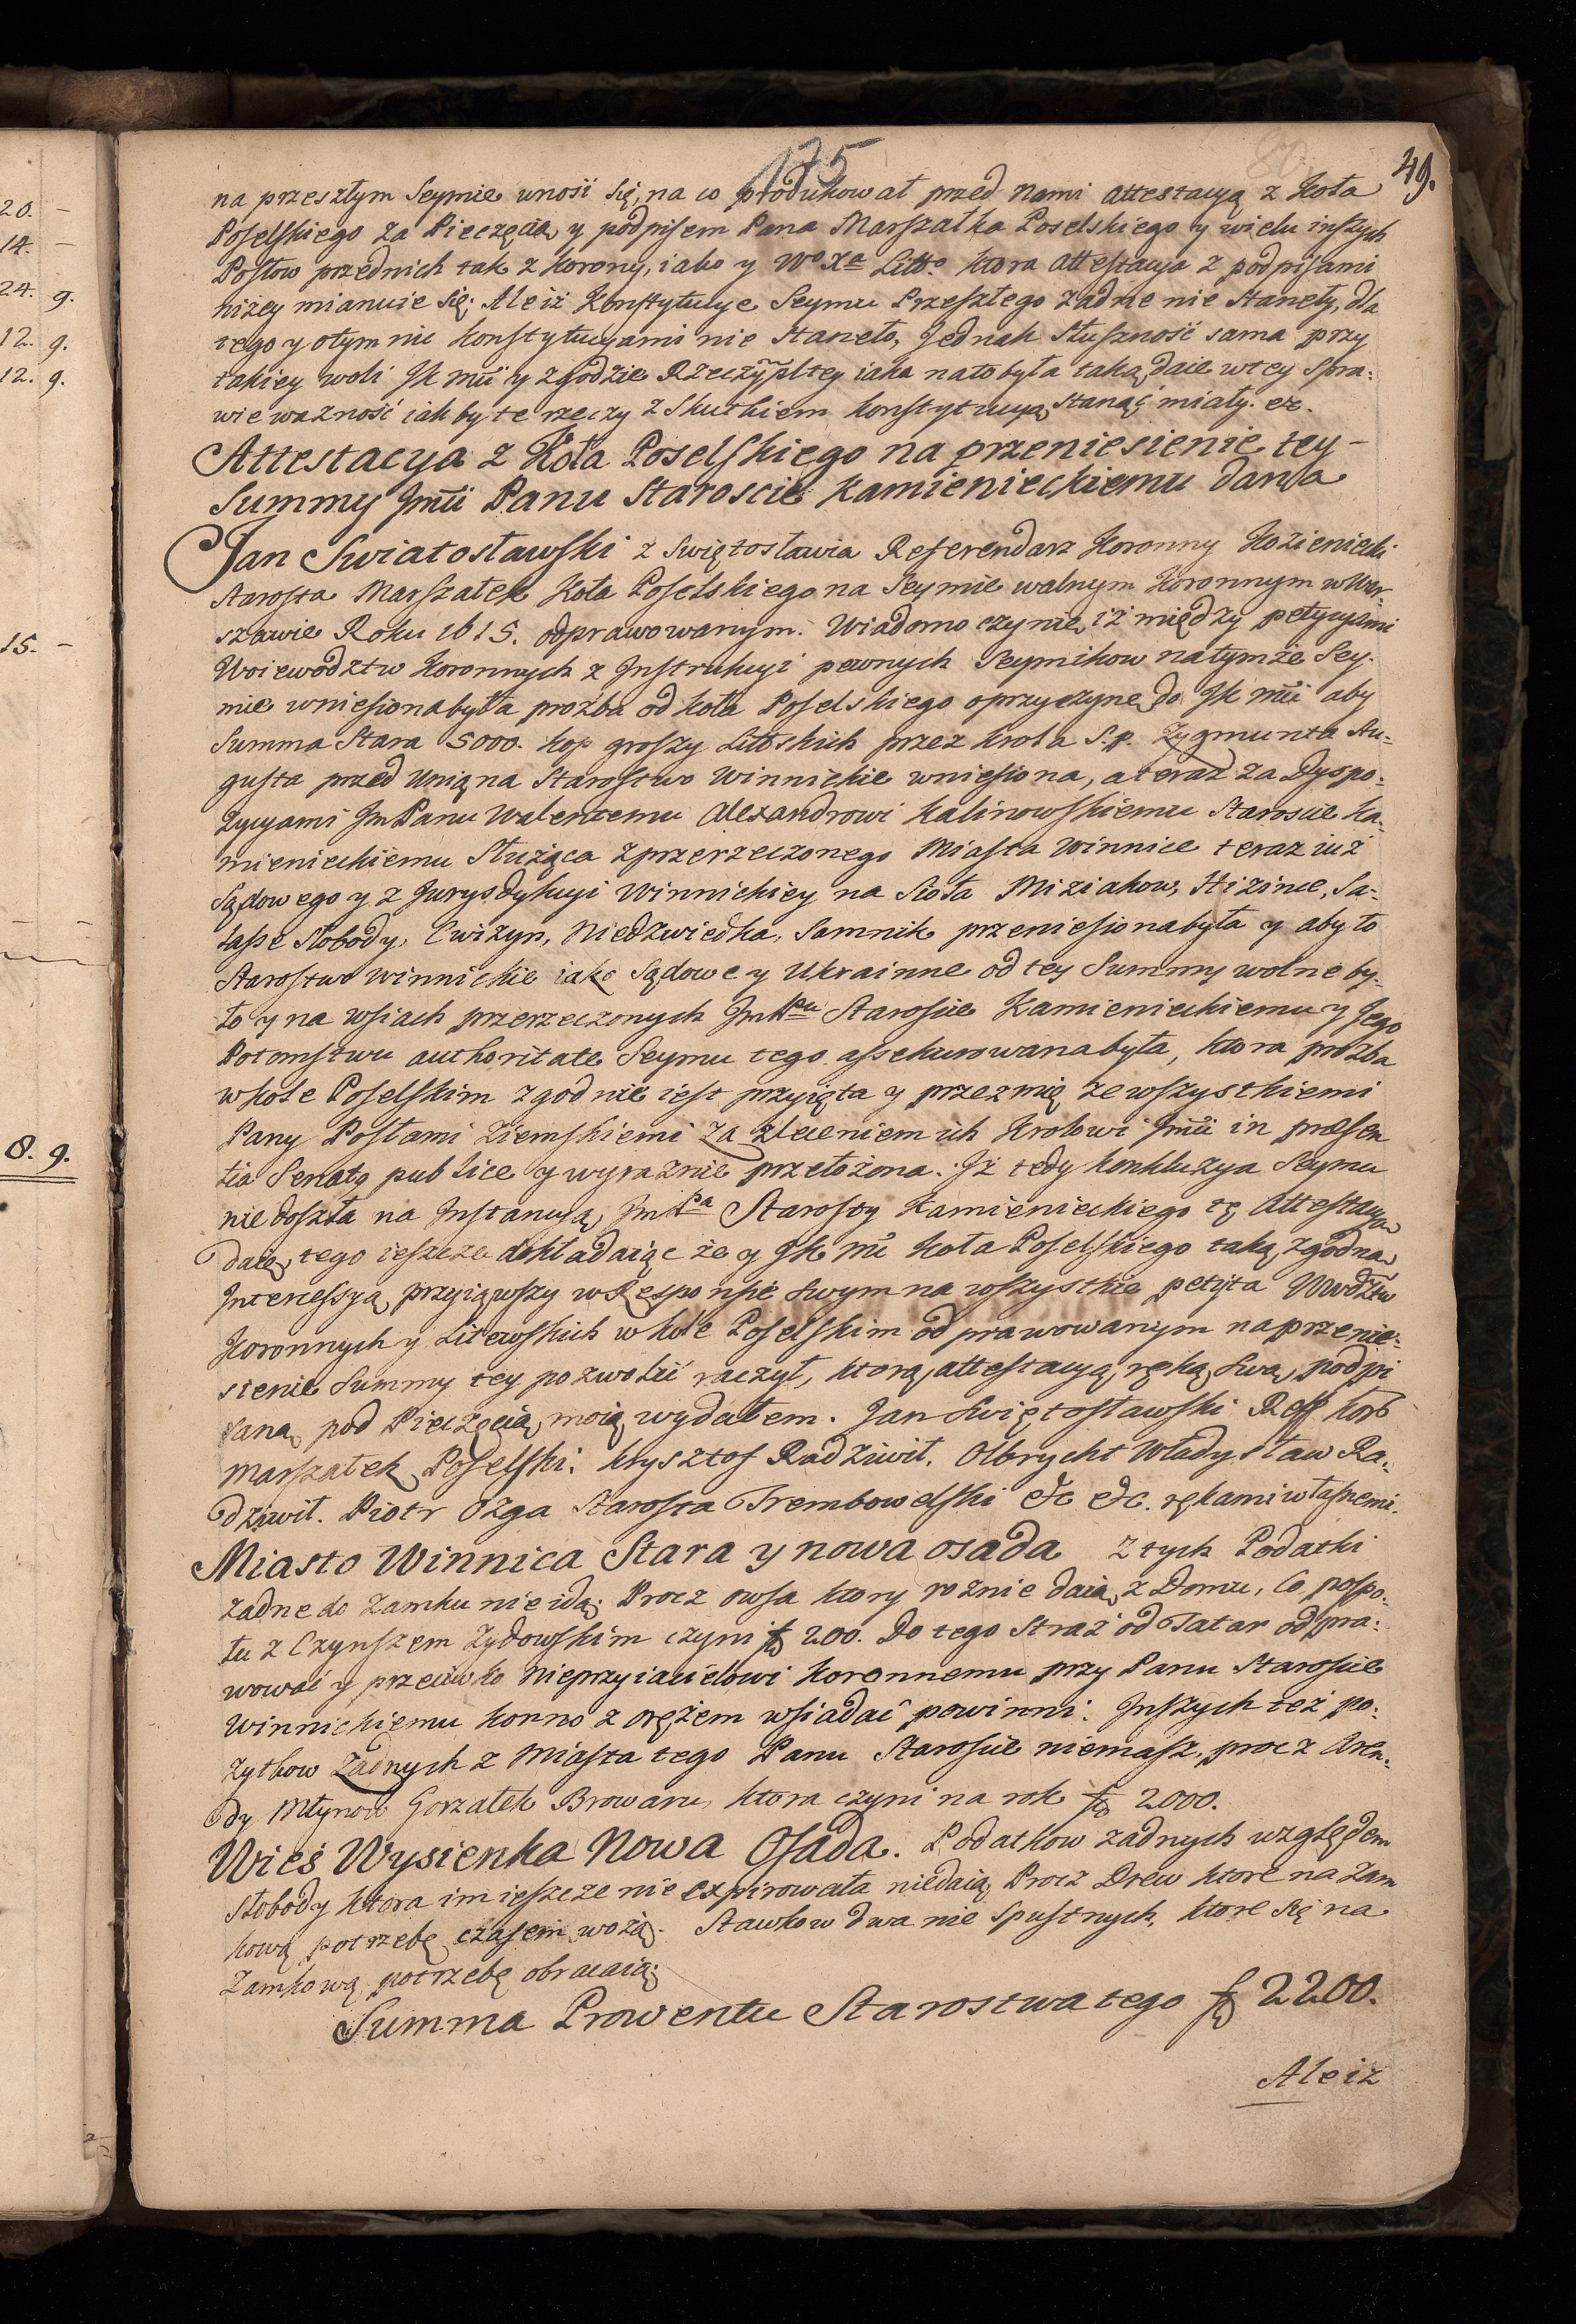 175
49.
na przeszłym Seymie wnosi się, na co produkował przed nami attestacyą z Koła
Poselskiego za Pieczęcią y podpisem Pana Marszałka Poselskiego y wielu inszych
Posłow przednich tak z Korony, iako y Wo Xa Litto. ktora attestacya z podpisami
niżey mianuie się; Ale iż Konstytucye Seymu Przeszłego żadne nie Stanęły, dla
tego y otym nic konstytucyami nie Staneło, Jednak Słusznosć sama przy
takiey woli JK Mći y zgodzie Rzeczypltey iaka nato była taką daie wtey Spra:
wie waznosć iakby te rzeczy z Skutkiem konstytucyą Stanąć miały. etc.
Attestacya z Koła Poselskiego na przeniesienie tey
Summy Jmći Panu Staroscie Kamienieckiemu dana
Jan Swiatosławski z Swiętosławia Referendarz Koronny Kozieniecki
Starosta Marszałek Koła Poselskiego na Seymie walnym Koronnym w War:
szawie Roku 1615. odprawowanym. Wiadomo czynię, iż między petycyami
Woiewodztw Koronnych z Instrukcyi pewnych Seymikow natymże Sey:
mie wniesiona była prozba od koła Poselskiego oprzyczynę do JK Mći aby
Summa Stara 5000. kop groszy Littskich przez krola S.p. Zygmunta Au:
gusta przed Unią na Starostwo Winnickie wniesiona, a teraz za Dyspo:
zycyami Jm Panu Walentemu Alexandrowi Kalinowskiemu Staroscie Ka:
mienieckiemu Służąca z przerzeczonego Miasta Winnice teraz iuż
Sądowego y z Jurysdykcyi Winnickiey na Sioła Miziakow, Hizince, Sa:
tasze Słobody, Cwizyn, Niedzwiedka, Samnik przeniesiona była y aby to
Starostwo Winnickie iako Sądowe y Ukrainne od tey Summy wolne by:
ło y na wsiach przerzeczonych Jm Pu Staroscie Kamienieckiemu y Jego
Potomstwu authoritate Seymu tego assekurowana była, ktora prozba
w kole Poselskim zgodnie iest przyięta y przezmię ze wszystkiemi
Pany Posłami Ziemskiemi za zleceniem ich Krolowi Jmći in præsen
tia Senatq publice y wyraznie przełożona. Jż tedy konkluzya Seymu
nie doszła na Instancyą Jm Pa Starosty Kamienieckiego tę Attestacyą
daię, tego ieszcze dokładaiąc że y JK Mć Koła Poselskiego taką zgodną
Intercessyą przyiąwszy w Responsie swym na wszystkie petyta Wwdztw
Koronnych y Litewskich w kole Poselskim odprawowanym na przenie:
sienie Summy tey pozwolić raczył, ktorą attestacyą ręką Swą podpi
saną pod Pieczęcią moią wydałem. Jan Swiętosławski Reff Kor
Marszałek Poselski. Krysztof Radziwił. Olbrycht Władysław Ra:
dziwił. Piotr Ozga Starosta Trembowelski etc etc. rękami własnemi.
Miasto Winnica Stara y nowa osada z tych Podatki
żadne do Zamku nie idą. Procz owsa ktory roznie daią z Domu, Co pospo:
łu z Czynszem żydowskim czyni fł 200. Do tego Straż od Tatar odpra:
wować y przeciwko nieprzyiacielowi koronnemu przy Panu Staroscie
Winnickiemu konno z orężem wsiadać powinni. Inszych też po:
żytkow żadnych z Miasta tego Panu Staroscie niemasz, procz Aren:
dy Młynow Gorzałek Browaru, ktora czyni na rok fł 2000.
Wieś Wysienka Nowa Osada. Podatkow zadnych względem
Słobody ktora im ieszcze nie expirowała niedaią, Procz Drew ktore na Zam
kową potrzebę czasem wożą. Stawkow dwa nie spustnych, ktore się na
Zamkową potrzebę obracaią;
Summa Prowentu Starostwa tego fł 2200.
Ale iż
20. -
14. -
24. 9.
12. 9.
12. 9.
15. -
8. 9.